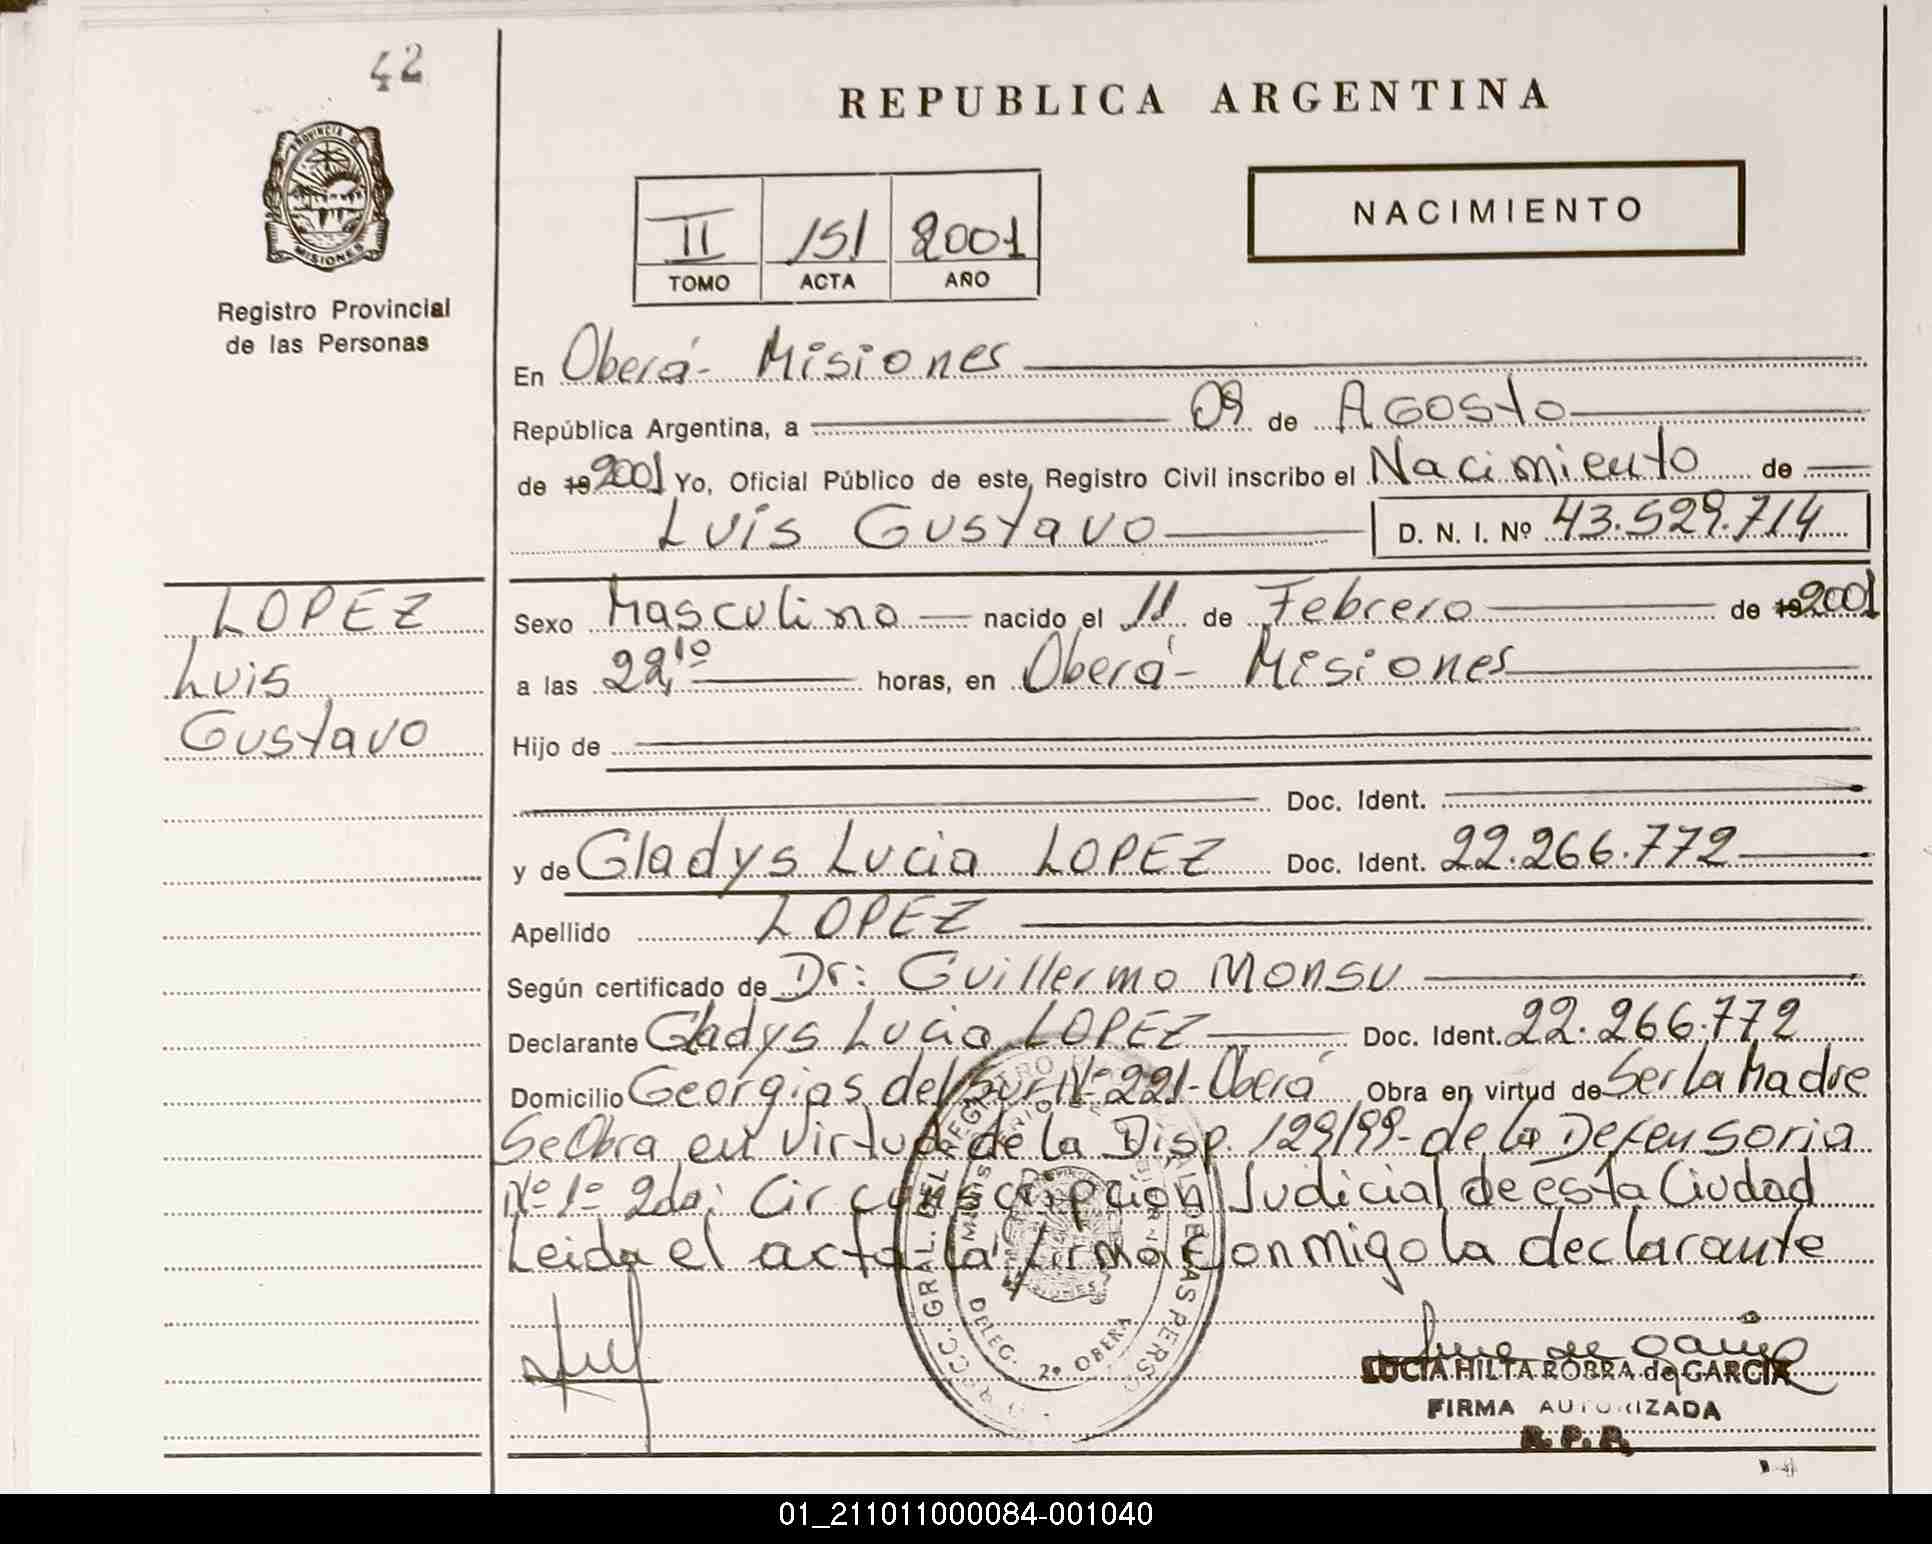 42
REPUBLICA ARGENTINA
PROVINCIA D
MISIONES
Registro Provincial
de las Personas
NACIMIENTO
II 151 2001
TOMO ACTA AÑO
En Oberá- Misiones
República Argentina, a 09 de Agosto
de 19 2001 Yo, Oficial Público de este Registro Civil inscribo el Nacimiento de
Luis Gustavo D. N. I. Nº 43.529.714
LOPEZ
Luis
Gustavo
Sexo Masculino nacido el 11 de Febrero de 19 2001
a las 22,10 horas, en Oberá- Misiones
Hijo de
Doc. Ident.
y de Gladys Lucia LOPEZ Doc. Ident. 22.266.772
Apellido LOPEZ
Según certificado de Dr: Guillermo Monsu
Declarante Gladys Lucia LOPEZ Doc. Ident. 22.266.772
Domicilio Georgias del Sur Nº 221- Oberá Obra en virtud de Ser la Madre
Se Obra en virtud de la Disp. 129/99- de la Defensoria
Nº 1º 2da: Circunscripcion Judicial de esta Ciudad
Leida el acta la firma Conmigo la declarante
DELEG. 2º OBERA
LUCIA HILTA ROBRA de GARCIA
FIRMA AUTORIZADA
R. P. P.
01_211011000084-001040